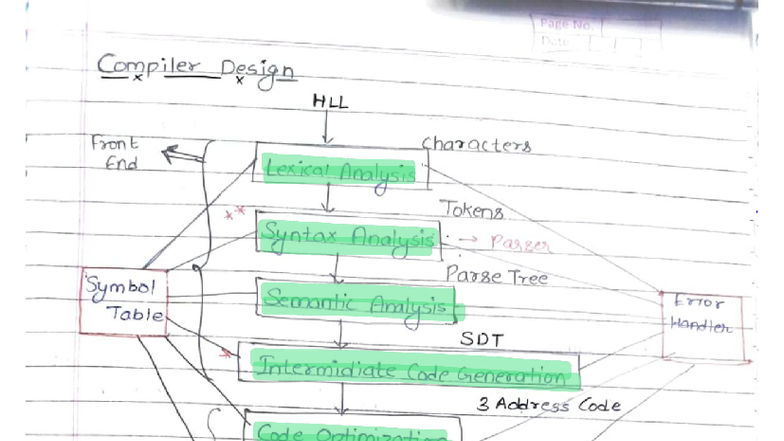 Page No.
Date
Compiler Design
HLL
Front
End
Characters
Lexical Analysis
Tokens
** Syntax Analysis → Parser
Parse Tree
Symbol
Table
Semantic Analysis
Error
Handler
SDT
* Intermidiate Code Generation
3 Address Code
Code Optimization